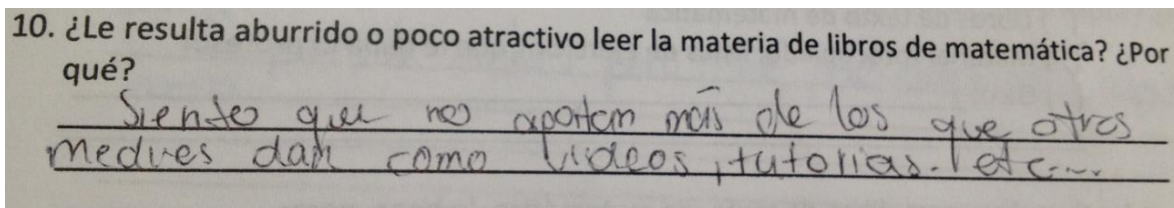 10. ¿Le resulta aburrido o poco atractivo leer la materia de libros de matemática? ¿Por
qué?
Siento que no aportan más de los que otros
medios dan como videos, tutorias. etc...